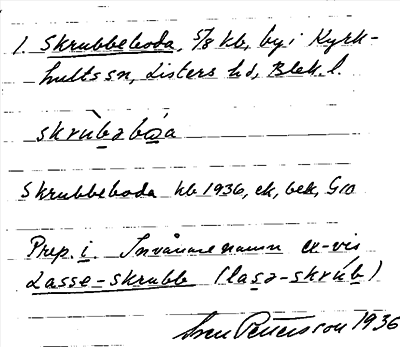 1. Skrubbeboda, 5/8 kb, by i Kyrk-
hults sn, Listers hd, Blek. l.
skrùbəboa
Skrubbeboda kb 1936, ek, bek, G10
Prep. i. Invånarenamn ex-vis
Lasse-skrubb (lasə-skrúb)
Sven Pettersson 1936